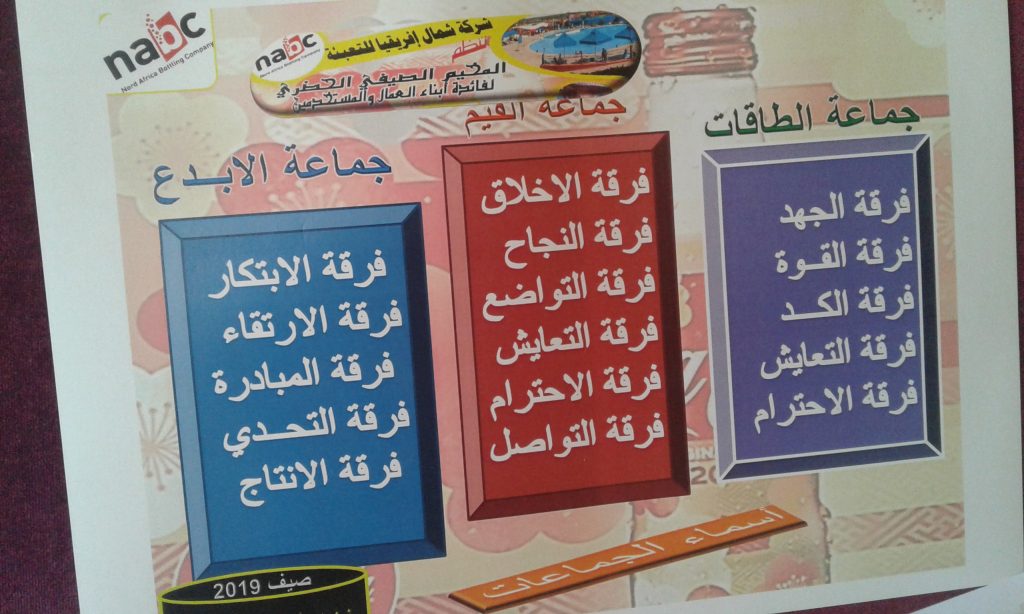 nabc
Nord Africa Bottling Company
شركة شمال إفريقيا للتعبئة
تنظم
المخيم الصيفي الحضري
لفائدة أبناء العمال والمستخدمين
nabc
جماعة الطاقات
فرقة الجهد
فرقة القوة
فرقة الكد
فرقة التعايش
فرقة الاحترام
جماعة القيم
فرقة الاخلاق
فرقة النجاح
فرقة التواضع
فرقة التعايش
فرقة الاحترام
فرقة التواصل
جماعة الابدع
فرقة الابتكار
فرقة الارتقاء
فرقة المبادرة
فرقة التحدي
فرقة الانتاج
أسماء الجماعات
صيف 2019